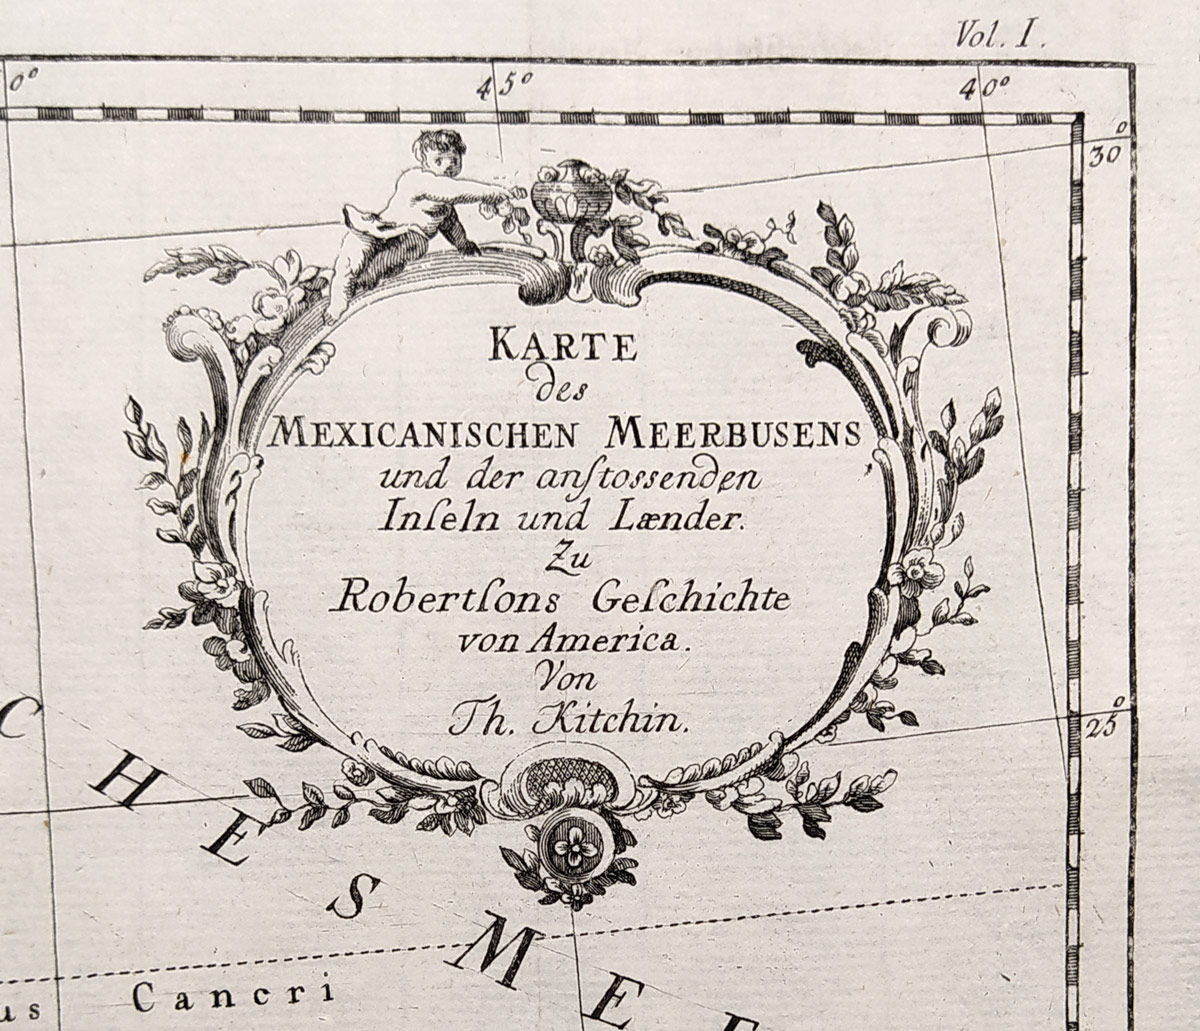 Vol. I.
0°
45°
40°
30°
KARTE
des
MEXICANISCHEN MEERBUSENS
und der anſtossenden
Inſeln und Lænder.
Zu
Robertſons Geſchichte
von America.
Von
Th. Kitchin.
25°
CHES MEE
us Cancri